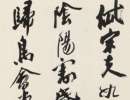 岱宗夫如
陰陽割昏
歸鳥會當